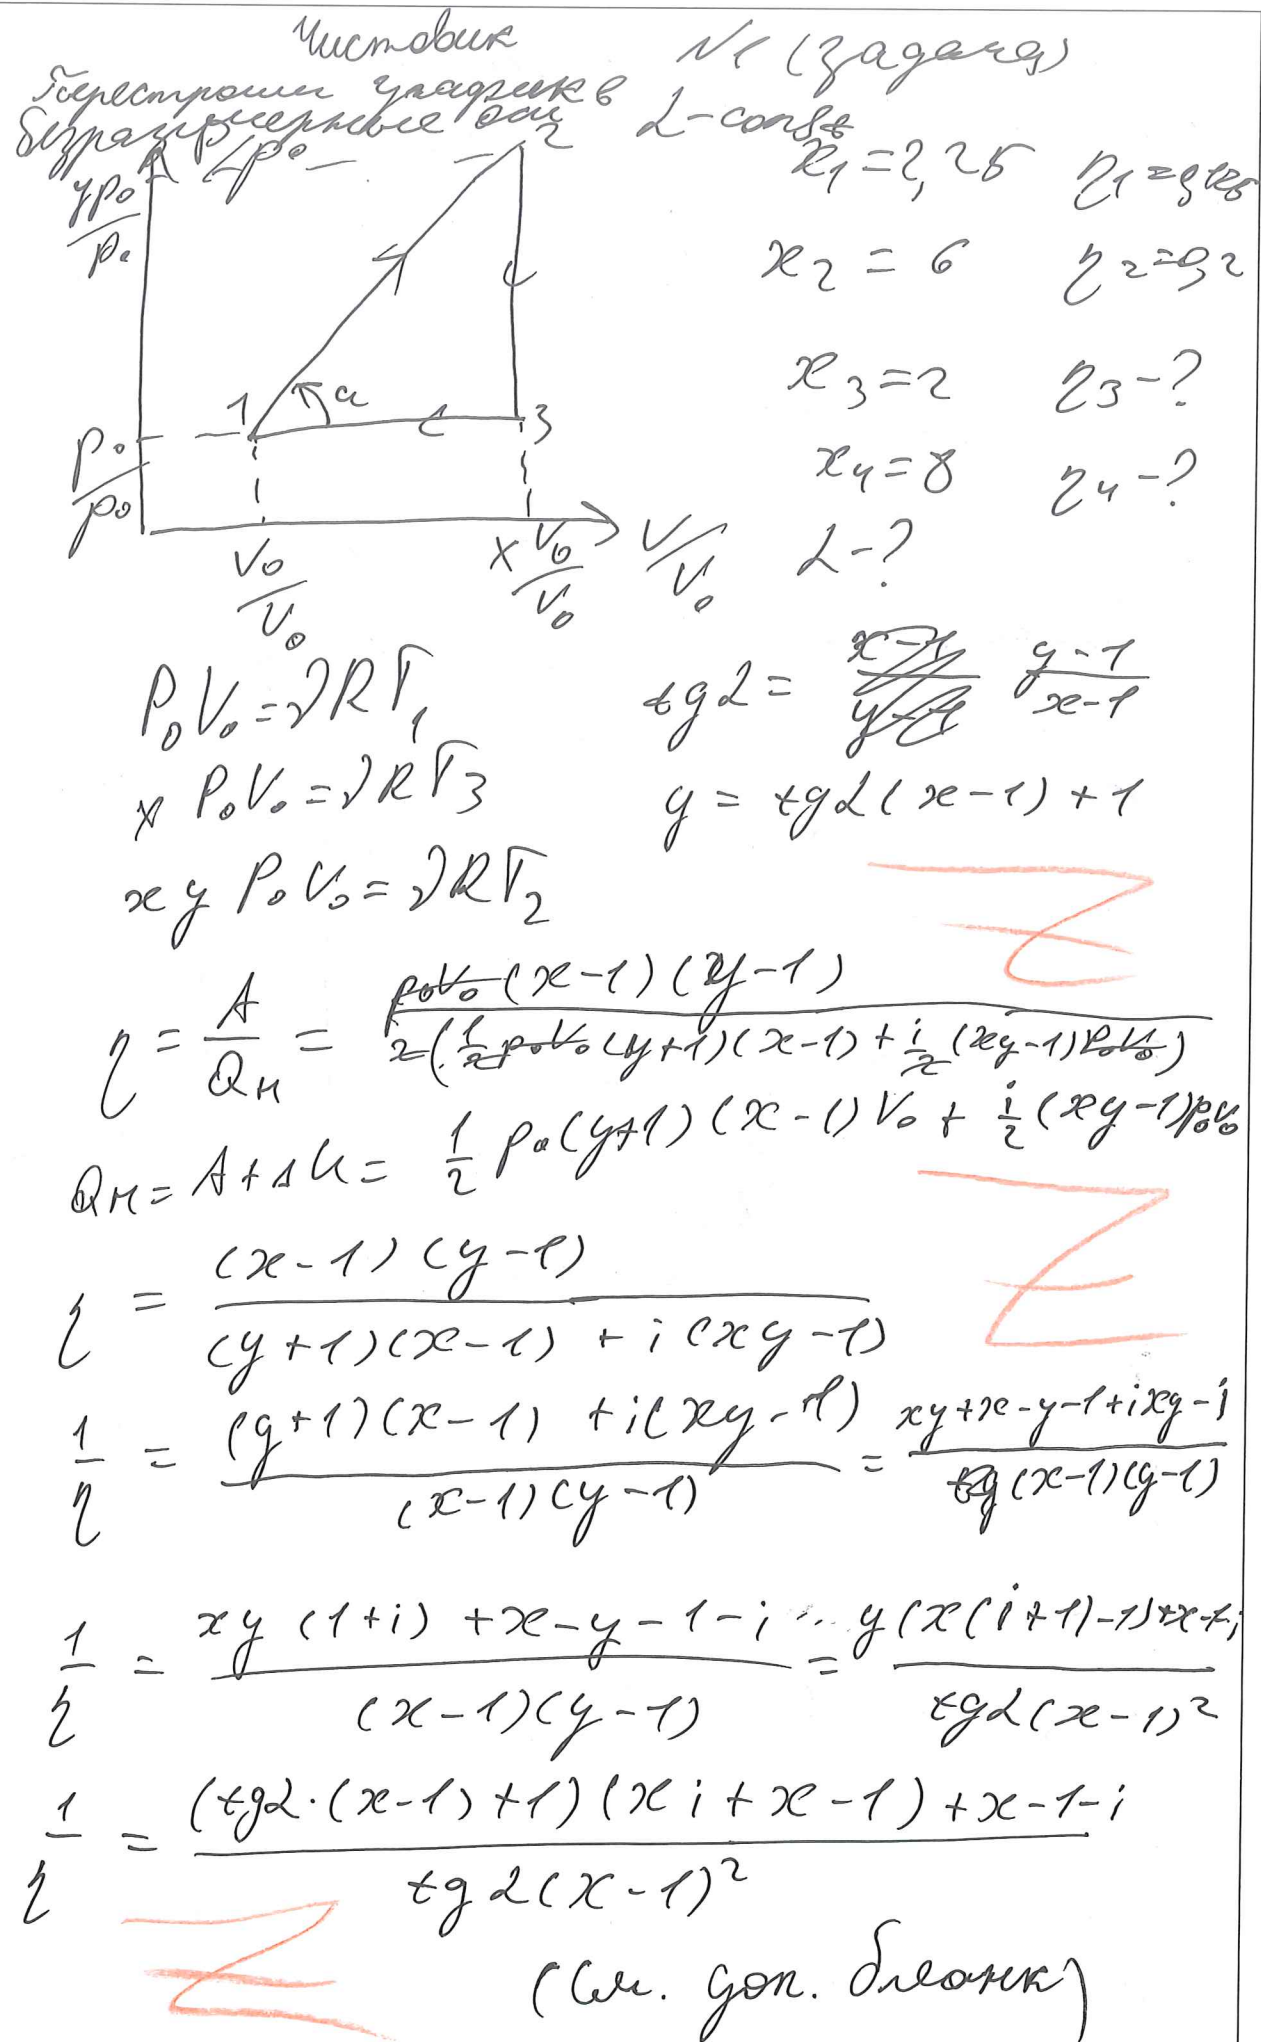 Чистовик №1 (задача)
Перестроим график в
безразмерные оси α-const
yp₀/p₀ 2 x₁=2,25 η₁=0,125
x₂ = 6 η₂=0,2
1 α 3 x₃=2 η₃-?
p₀/p₀ x₄=8 η₄-?
V₀/V₀ xV₀/V₀ V/V₀ α-?
P₀V₀=νRT₁ tgα = (y-1)/(x-1)
x P₀V₀=νRT₃ y = tgα(x-1)+1
xy P₀V₀=νRT₂
η = A/Qн = p₀V₀(x-1)(y-1) / 2(1/2 p₀V₀(y+1)(x-1) + i/2 (xy-1)p₀V₀)
Qн = A+ΔU = 1/2 p₀(y+1)(x-1)V₀ + i/2 (xy-1)p₀V₀
η = (x-1)(y-1) / (y+1)(x-1) + i(xy-1)
1/η = (y+1)(x-1) + i(xy-1) / (x-1)(y-1) = xy+x-y-1+ixy-i / (x-1)(y-1)
1/η = xy(1+i)+x-y-1-i / (x-1)(y-1) = y(x(i+1)-1)+x-1-i / tgα(x-1)²
1/η = (tgα·(x-1)+1)(xi+x-1)+x-1-i / tgα(x-1)²
(См. доп. бланк)